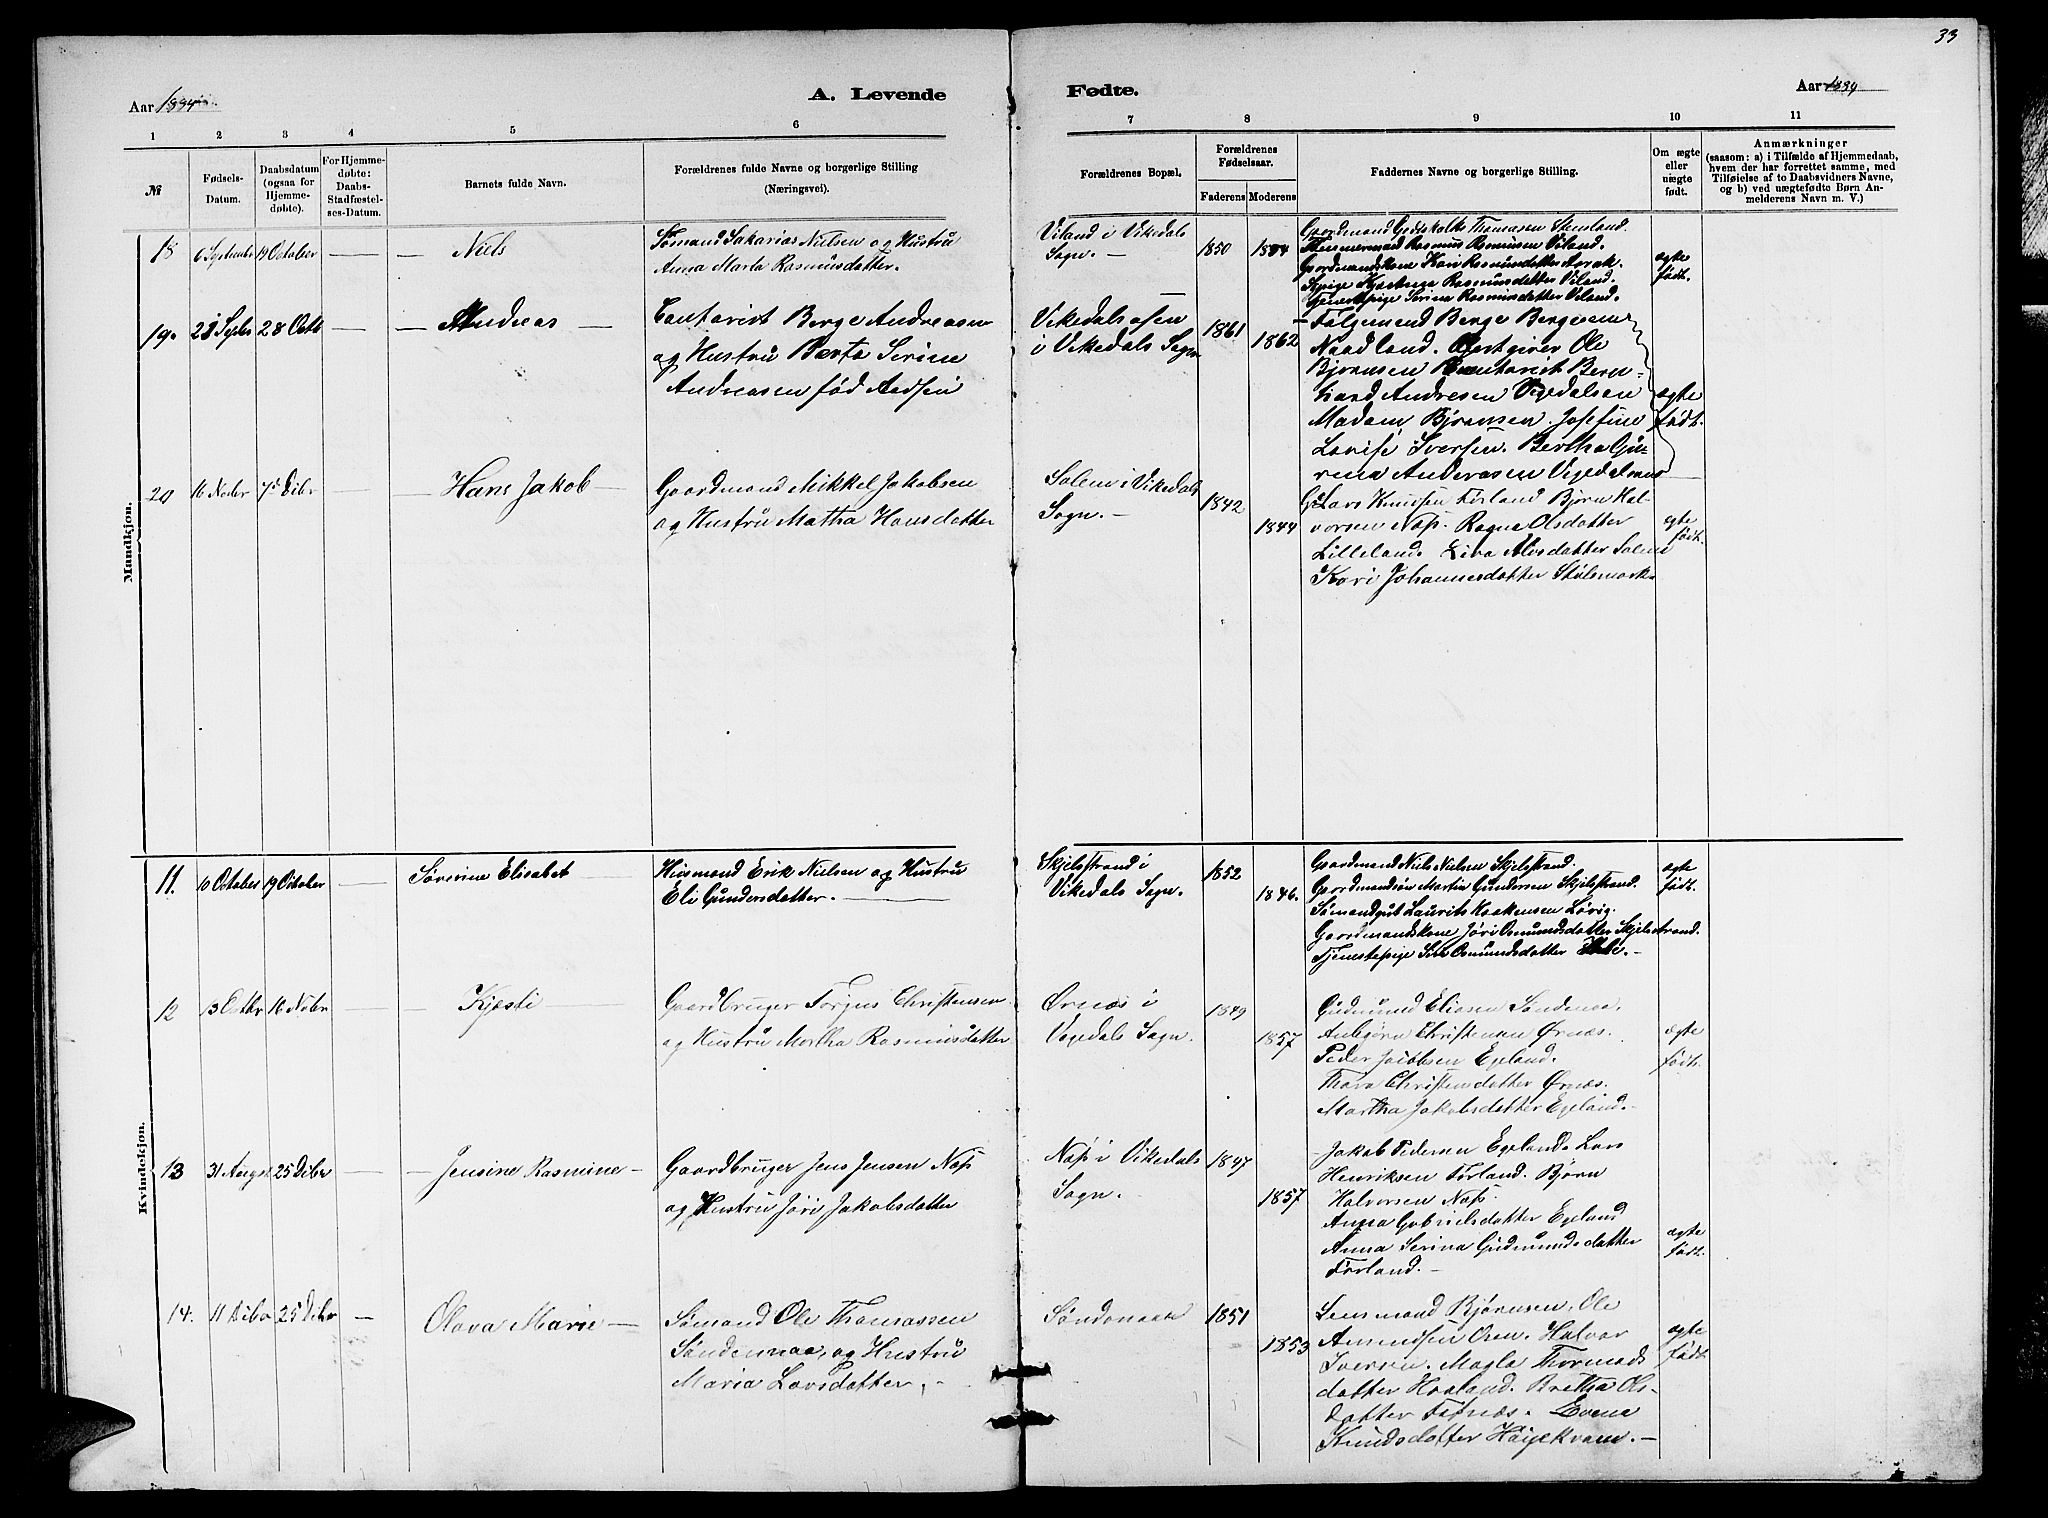 33
Aar 1884
A. Levende
Fødte.
Aar 1884
1 2 3 4 5 6 7 8 9 10 11
№
Fødsels-
Datum.
Daabsdatum
(ogsaa for
Hjemme-
døbte).
For Hjemme-
døbte:
Daabs-
Stadfæstel-
ses-Datum.
Barnets fulde Navn.
Forældrenes fulde Navne og borgerlige Stilling
(Næringsvei).
Forældrenes Bopæl.
Forældrenes
Fødselsaar.
Faderens
Moderens
Faddernes Navne og borgerlige Stilling.
Om ægte
eller
uægte
født.
Anmærkninger
(saasom: a) i Tilfælde af Hjemmedaab,
hvem der har forrettet samme, med
Tilføielse af to Daabsvidners Navne,
og b) ved uægtefødte Børn An-
melderens Navn m. V.)
Mandkjøn.
18 6 September 19 October — — Niels
Sømand Sakarias Nielsen og Hustru
Anna Marta Rasmusdatter.
Viland i Vikedals
Sogn. —
1850
Gaardmand Thomasen Stenland.
Rasmus Rasmusen Viland.
Gaardmandskone Kari Rasmusdatter
Pige Rasmusdatter Viland.
Tjenestepige Serina Rasmusdatter Viland.
ægte
født.
19. Septbr 28 Octb — — Andreas —
Berge Andreasen
og Hustru Berta Serine
Andreassen fød
Vikedalsosen
i Vikedals Sogn
1861
1862
Berge Bergesen
Naadland. Ole
Bjørnsen Bern-
hard Andresen Vegedalsen
Madam Bjørnsen. Josefine
Lovise Iversen. Bertha Gu-
rina Anderasen
ægte
født.
20 16 Novbr Dibr — — Hans Jakob —
Gaardmand Mikkel Jakobsen
og Hustru Matha Hansdatter
Solem i Vikedals
Sogn. —
1842
1844
Lars Knudsen Førland Bjørn Hal-
vorsen Nap. Ragna Olsdatter
Lilleland. Liva Alvsdatter
Kari Johannesdatter Stülsmark
ægte
født.
Kvindekjøn.
11. 10 October 19 October — Sørerine Elisabet —
Husmand Erik Nielsen og Hustru
Eli Gundersdatter. —
Skjelstrand i
Vikedals Sogn.
1852
1846.
Gaardmand Niels Nielsen Skjelstrand.
Gaardmandsøn Martin Gundersen Skjelstrand.
Sømandgut Laurits Haakensen Løvig.
Gaardmandskone Jøri Osmundsdatter Skjelstrand.
Tjenestepige Siri Osmundsdatter
ægte
født.
12 13 Octbr 16 Novbr — — Kjesti —
Gaardbruger Torjus Christensen
og Hustru Martha Rasmusdatter
Ørnæs i
Vegedals Sogn.
1849
1857
Gudmund Eliasen Søndenaa.
Anbjørn Christensen Ørnæs.
Peder Jacobsen Egeland.
Thora Christensdatter Ørnæs.
Martha Jakobsdatter Egeland. —
ægte
født.
13 31 Augst 25 Dibr — — Jensine Rasmine —
Gaardbruger Jens Jensen Nap
og Hustru Jøri Jakobsdatter
Nap i Vikedals
Sogn.
1847
1857
Jakob Pedersen Egeland. Lars
Henriksen Førland. Bjørn
Halvorsen Nap.
Anna Gabrielsdatter Egeland
Anna Serina Gudmundsdatter
Førland. —
ægte
født.
14. 11 Dibr 25 Dibr — Olava Marie —
Sømand Ole Thomassen
Søndenaa, og Hustru
Maria Larsdatter. —
Søndenaa
1851
1853
Lensmand Bjørnsen, Ole
Amundsen Osen. Halvor
Iversen. Magla Thormods
datter Haaland. Bretha Ols-
datter
Knudsdatter Høiekvam. —
ægte
født